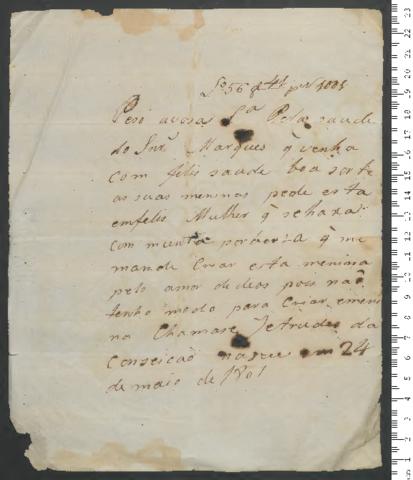 Peso avosa S.ª Pela saude
do Snr Marques q venha
com felis saude boa sorte
as suas meninas pede esta
emfelis Mulher q sehaxa
com munta pobreza q me
mande Criar esta menina
pelo amor de deos pois não
tenho modo para Criar emeni
na Chamase Jetrudes da
Conseicão nasceu em 24
de maio de 1801